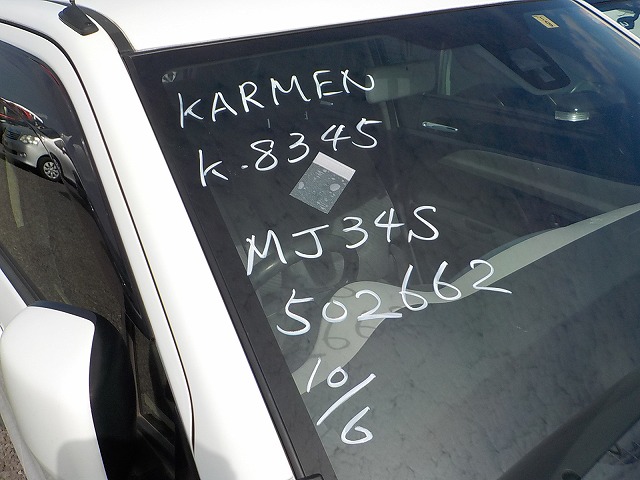 KARMEN
K-8345
MJ34S
502662
10/6